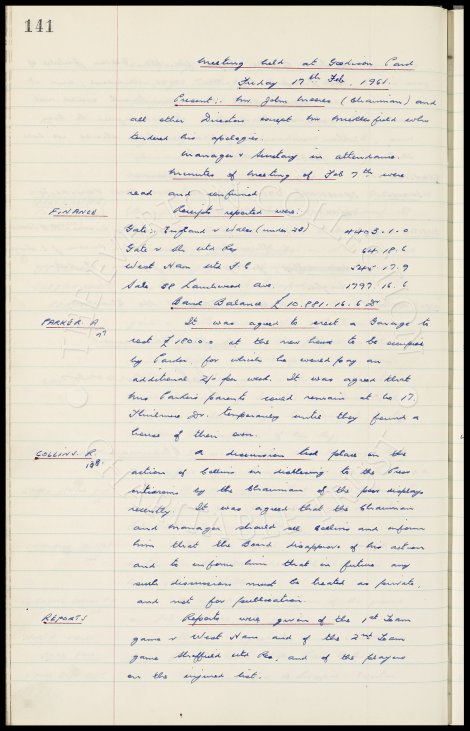 141
Meeting held at Goodison Park
Friday 17th Feb. 1961.
Present:- Mr John Moores (Chairman) and
all other Directors except Mr Micklesfield who
tendered his apologies.
Manager & Secretary in attendance.
Minutes of Meeting of Feb 7th were
read and confirmed
FINANCE Receipts reported were:-
Gate:- England v Wales (under 23) 4403.1.0
Gate v Utd Res 64.18.6
West Ham Utd F.C 17.9
Sale 58 Ave. 1797.16.6
Bank Balance £10.881.16.6 Dr
PARKER. A It was agreed to erect a Garage to
cost £180.0.0 at the new house to be occupied
by Parker for which he would pay an
additional 2/- per week. It was agreed that
Mrs Parker's parents could remain at No 17.
Dr. temporarily until they found a
house of their own.
COLLINS. R A discussion took place on the
198.
action of Collins in disclosing to the Press
criticisms by the Chairman of the poor displays
recently. It was agreed that the Chairman
and Manager should see Collins and inform
him that the Board disapprove of his action
and to inform him that in future any
such discussions must be treated as private
and not for publication.
REPORTS Reports were given of the 1st Team
game v West Ham and of the 2nd Team
game Sheffield Utd Res, and of the players
on the injured list.